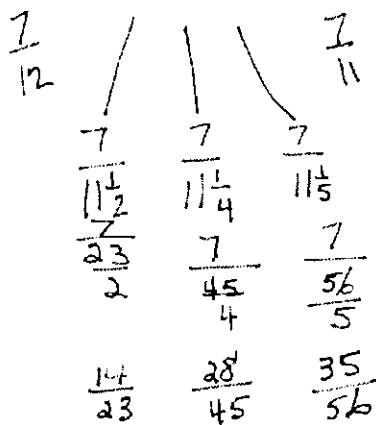 7/12 7/11
7/11 1/2 7/11 1/4 7/11 1/5
7/(23/2) 7/(45/4) 7/(56/5)
14/23 28/45 35/56